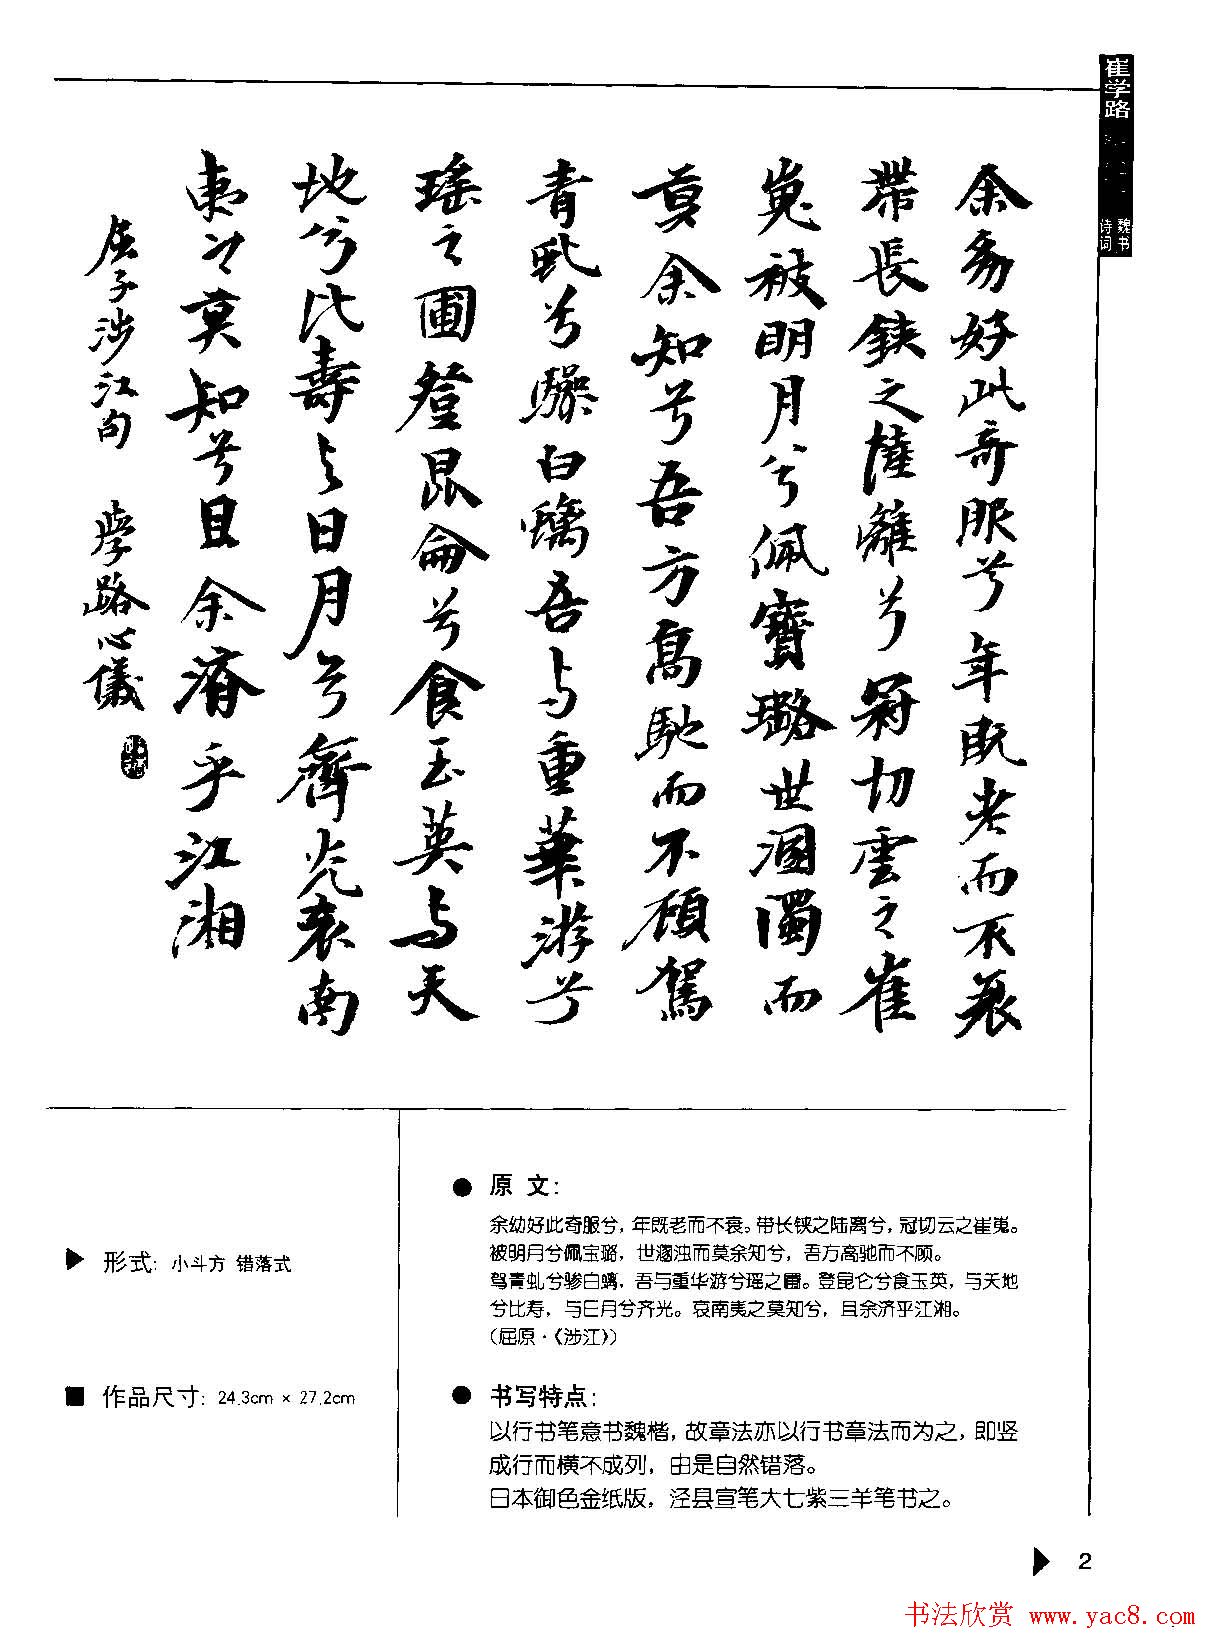 崔学路
魏书
诗词
余幼好此奇服兮年既老而不衰
带長鋏之陸離兮冠切雲之崔
嵬被明月兮佩寶璐世溷濁而
莫余知兮吾方高馳而不顧駕
青虬兮驂白螭吾与重華游兮
瑤之圃登昆侖兮食玉英与天
地兮比壽与日月兮齊光哀南
夷之莫知兮且余濟乎江湘
屈子涉江句 學路心儀
▶ 形式: 小斗方 错落式
■ 作品尺寸: 24.3cm × 27.2cm
● 原 文:
余幼好此奇服兮，年既老而不衰。带长铗之陆离兮，冠切云之崔嵬。
被明月兮佩宝璐，世溷浊而莫余知兮，吾方高驰而不顾。
驾青虬兮骖白螭，吾与重华游兮瑶之圃。登昆仑兮食玉英，与天地
兮比寿，与日月兮齐光。哀南夷之莫知兮，且余济乎江湘。
(屈原·《涉江》)
● 书写特点:
以行书笔意书魏楷，故章法亦以行书章法而为之，即竖
成行而横不成列，由是自然错落。
日本御色金纸版，泾县宣笔大七紫三羊笔书之。
▶ 2
书法欣赏 www.yac8.com